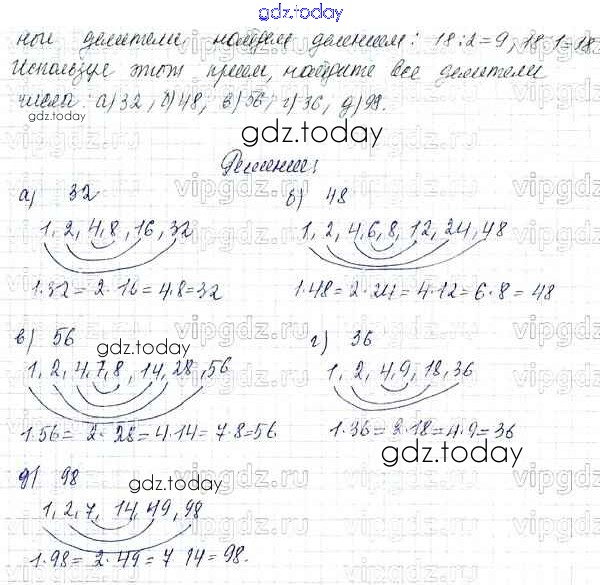 gdz.today
ной делители, найдем делением: 18:2=9, 18:1=18
Используя этот прием, найдите все делители
числа: а) 32, б) 48, в) 56, г) 36, д) 98.
gdz.today
gdz.today
Решение:
а) 32
1, 2, 4, 8, 16, 32
1·32= 2·16=4·8=32
б) 48
1, 2, 4, 6, 8, 12, 24, 48
1·48=2·24=4·12=6·8=48
в) 56
gdz.today
1, 2, 4, 7, 8, 14, 28, 56
1·56= 2·28=4·14=7·8=56
г) 36
1, 2, 4, 9, 18, 36
1·36=2·18=4·9=36
gdz.today
д) 98
gdz.today
1, 2, 7, 14, 49, 98
1·98= 2·49= 7 14= 98.
vipgdz.ru